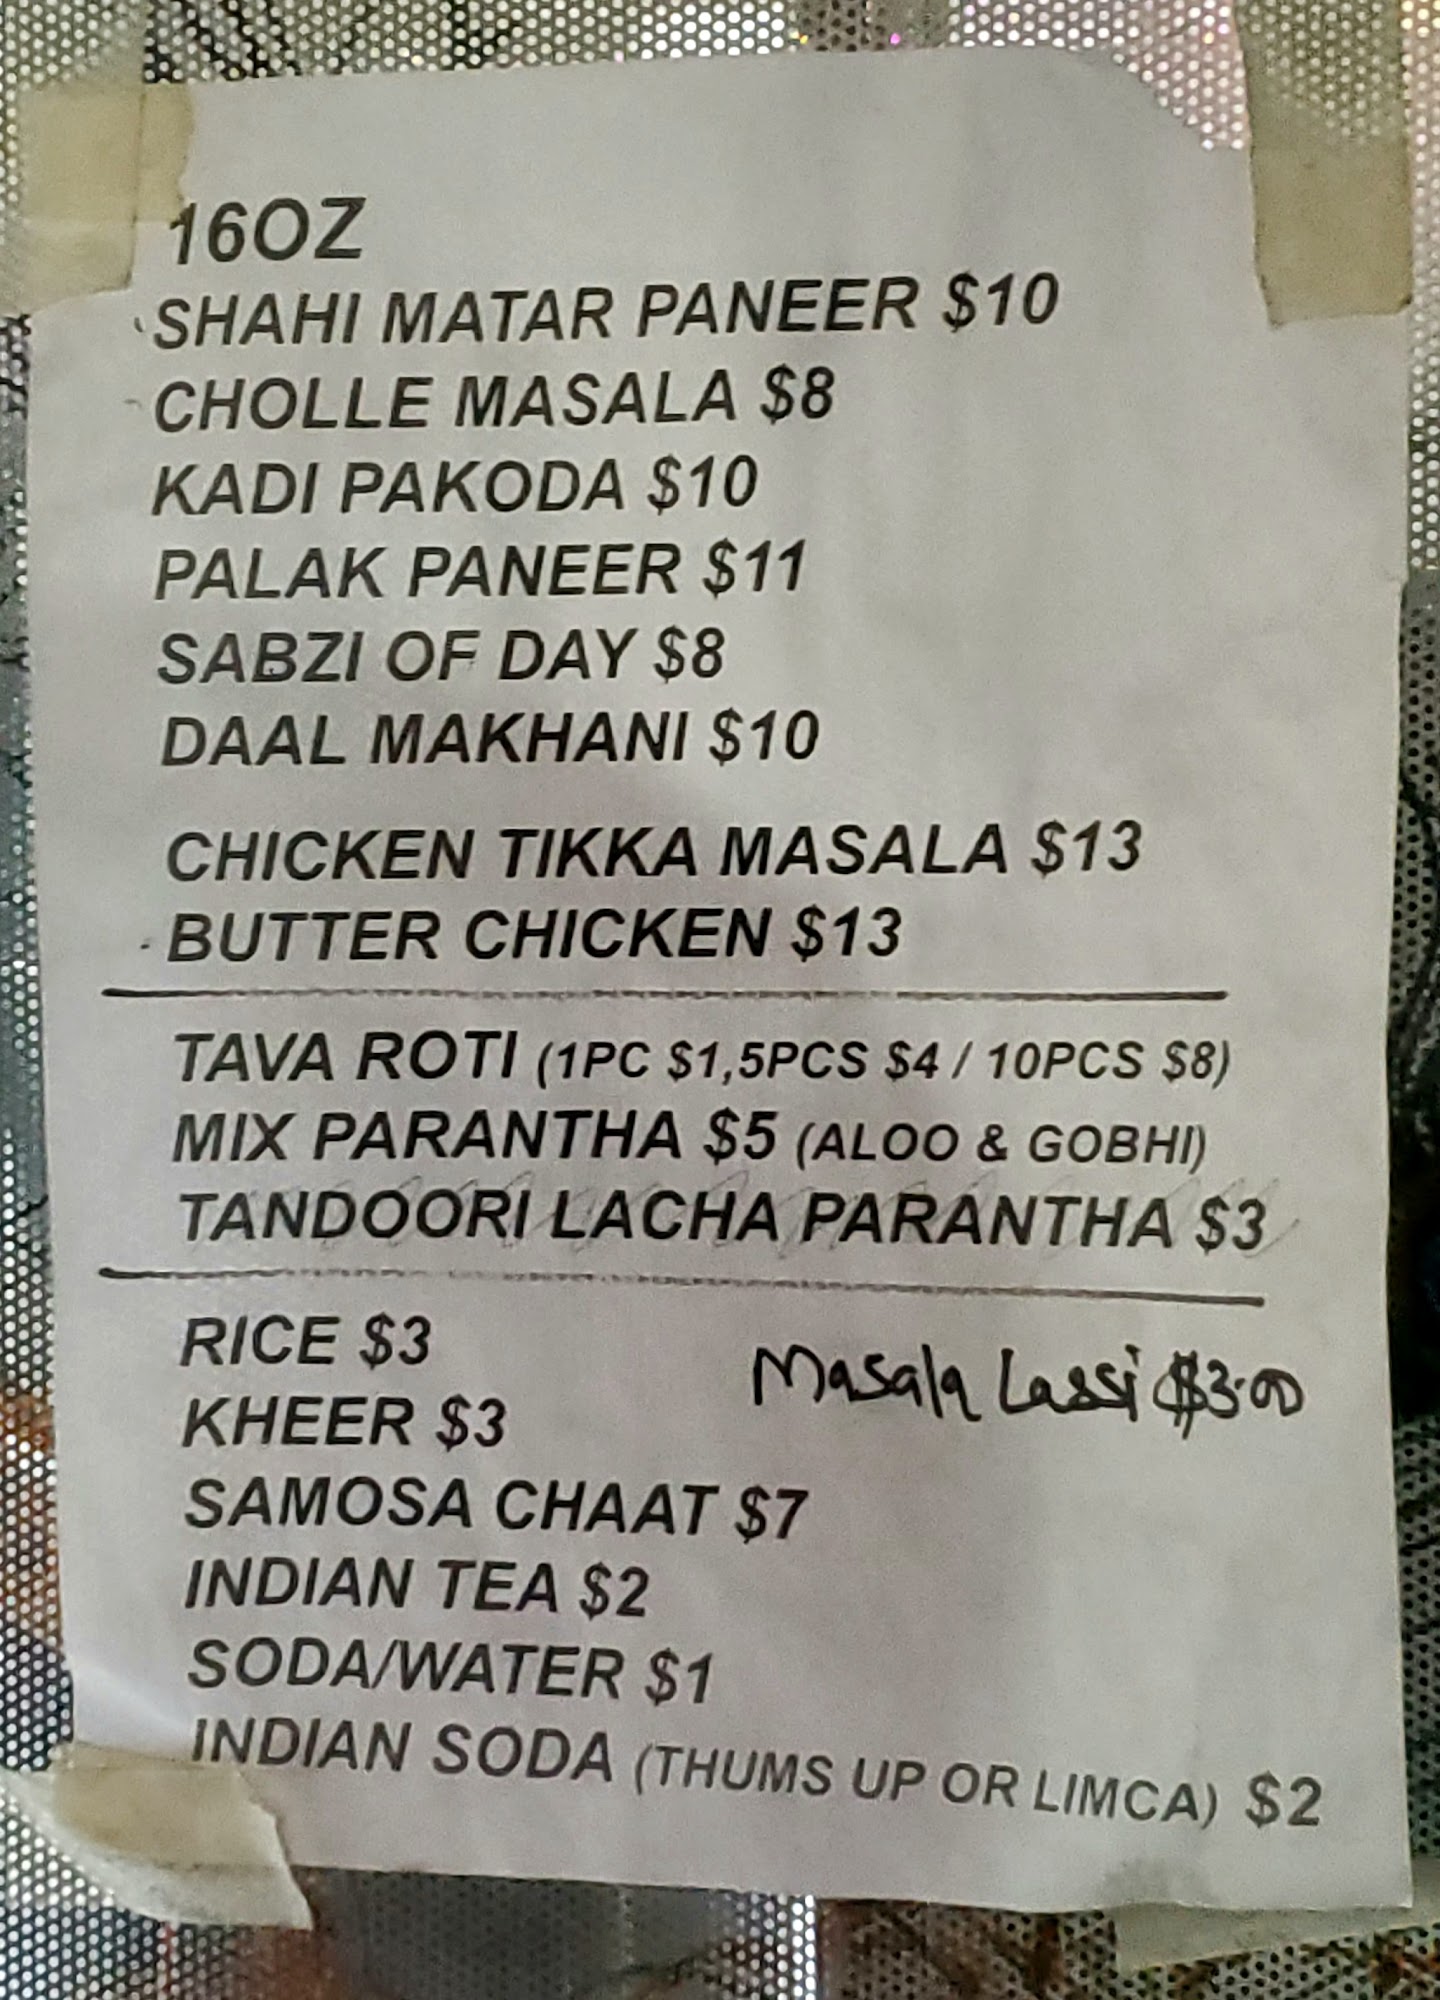 16OZ
SHAHI MATAR PANEER $10
CHOLLE MASALA $8
KADI PAKODA $10
PALAK PANEER $11
SABZI OF DAY $8
DAAL MAKHANI $10
CHICKEN TIKKA MASALA $13
BUTTER CHICKEN $13
TAVA ROTI (1PC $1,5PCS $4 / 10PCS $8)
MIX PARANTHA $5 (ALOO & GOBHI)
TANDOORI LACHA PARANTHA $3
RICE $3
Masala Lassi $3.00
KHEER $3
SAMOSA CHAAT $7
INDIAN TEA $2
SODA/WATER $1
INDIAN SODA (THUMS UP OR LIMCA) $2